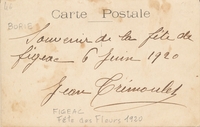 Carte Postale
BORIE
Souvenir de la fête de
figeac 6 Juin 1920
Jean Trémoulet
FIGEAC
Fête des Fleurs 1920